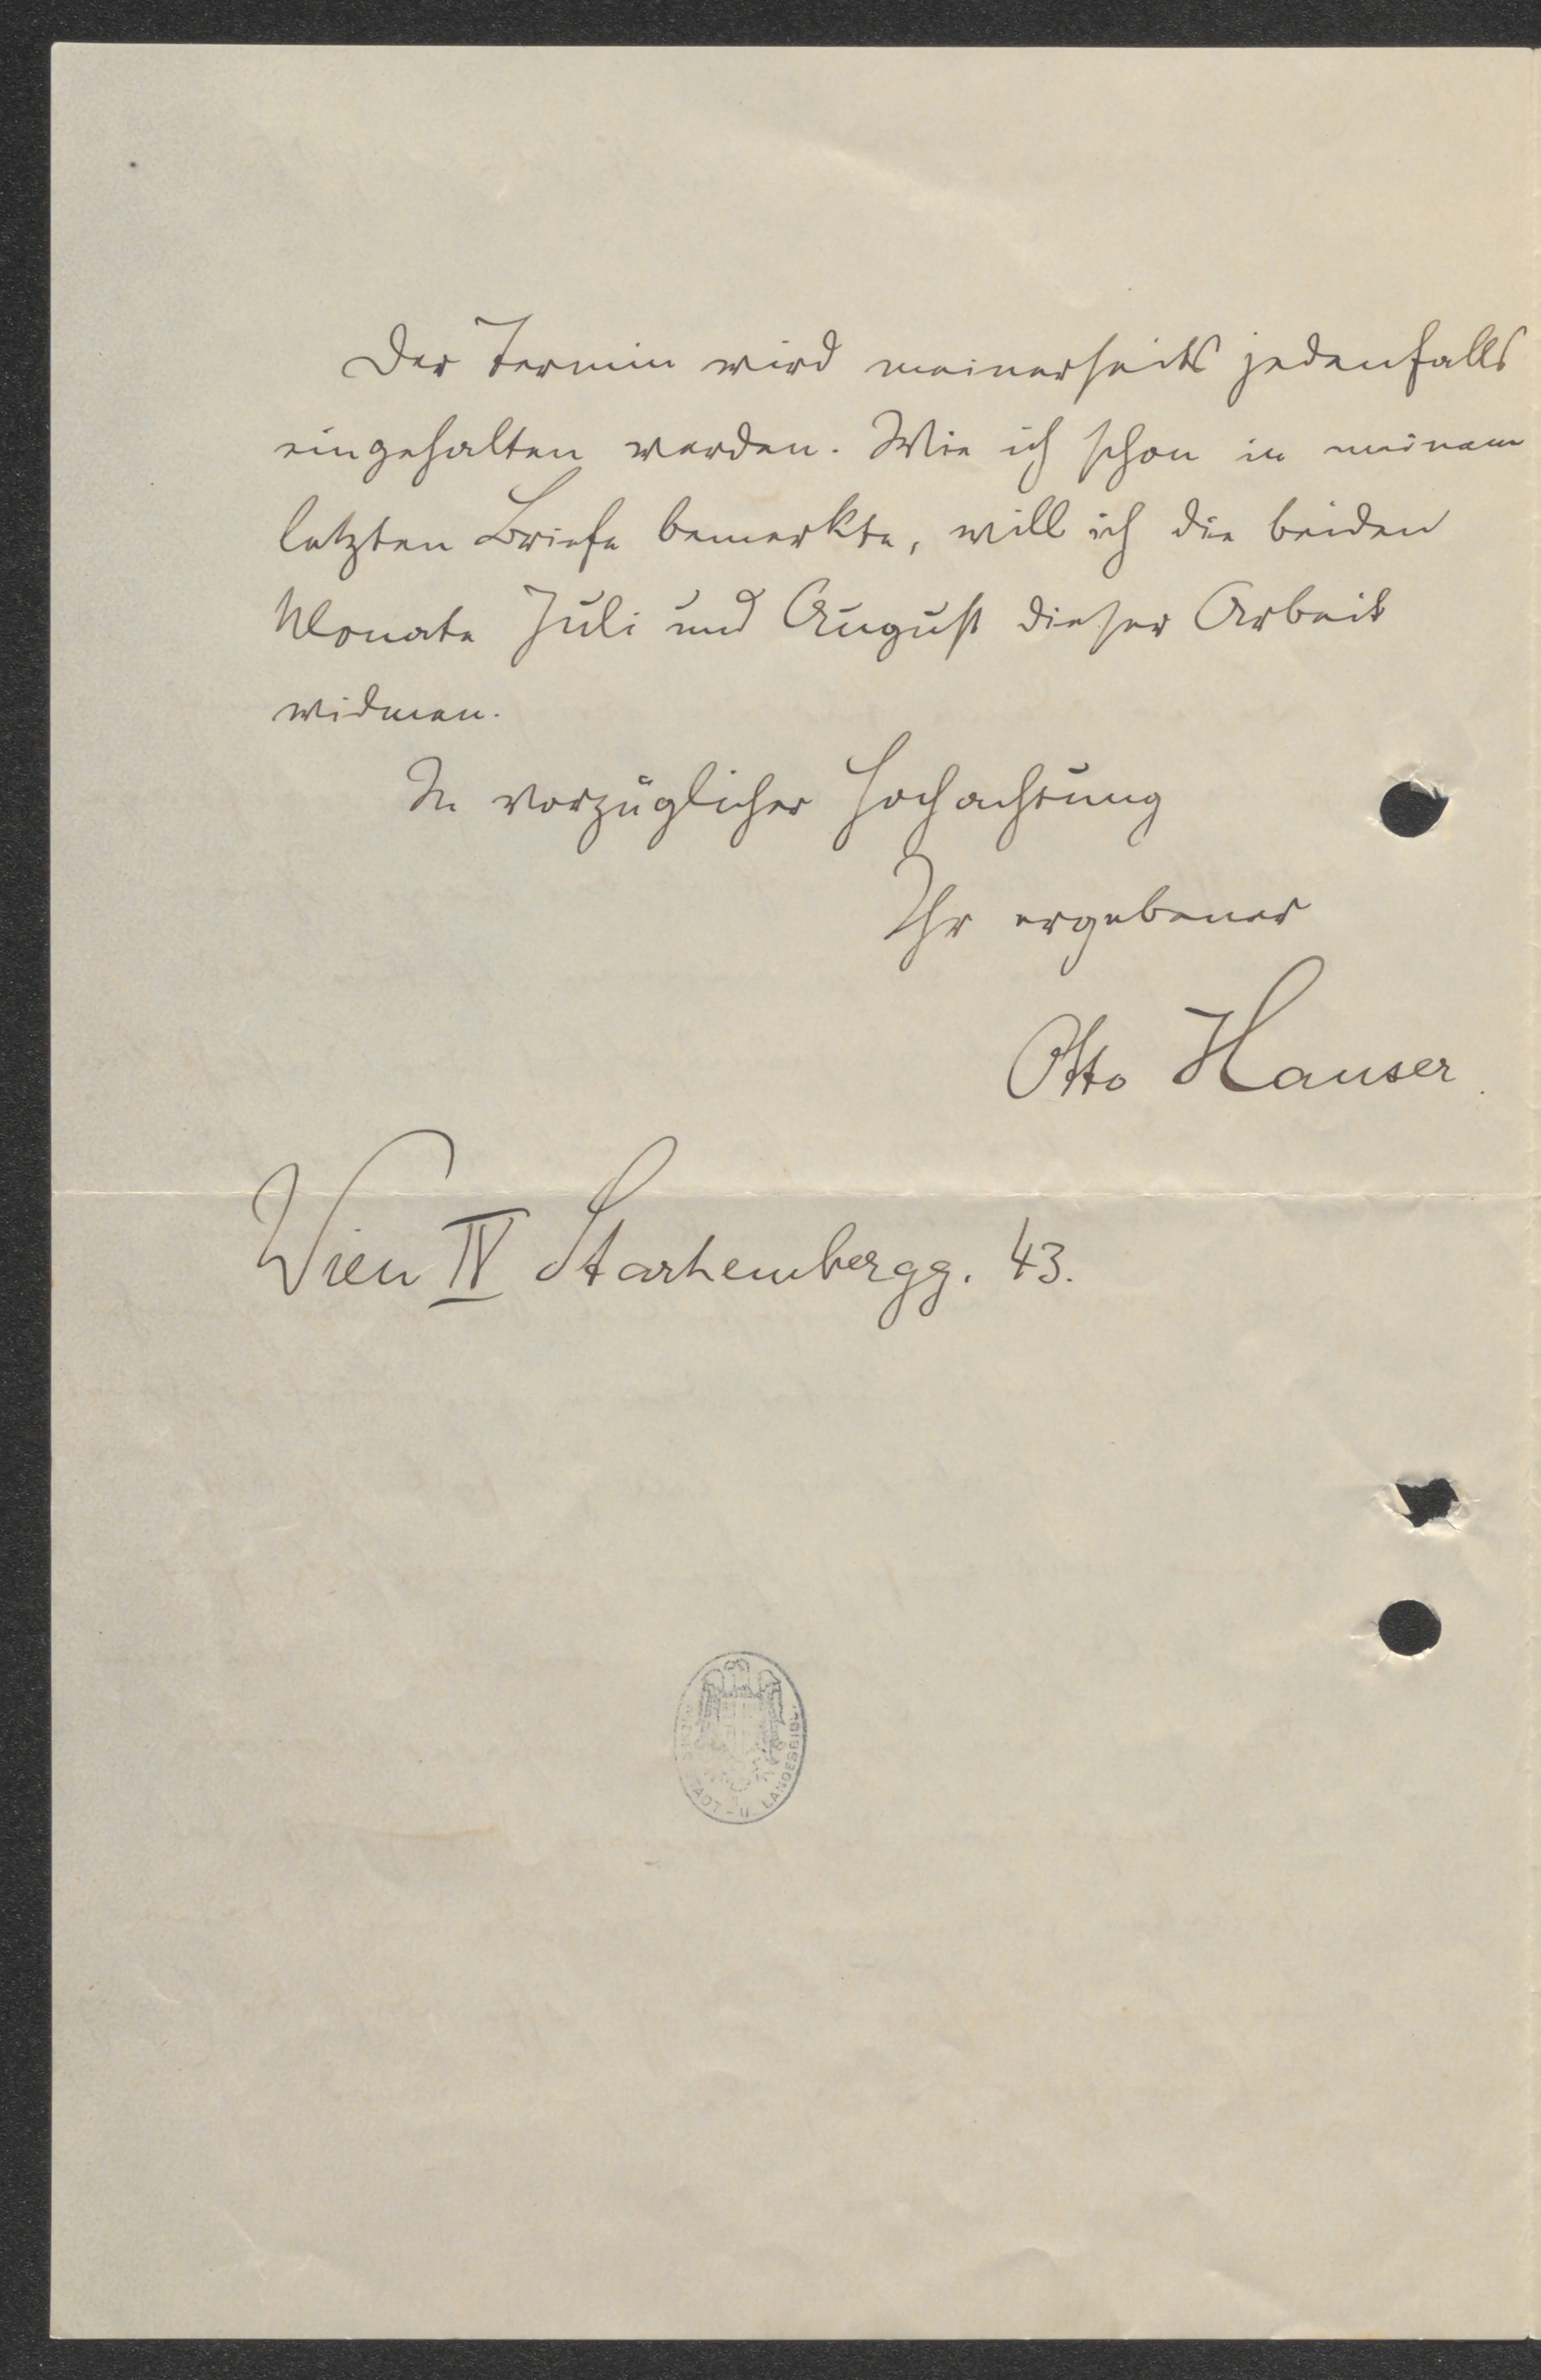 Der Termin wird meinerseits jedenfalls
eingehalten werden. Wie ich schon in meinem
letzten Briefe bemerkte, will ich die beiden
Monate Juli und August dieser Arbeit
widmen.
In vorzüglicher Hochachtung
Ihr ergebener
Otto Hauser
Wien IV Starhembergg. 43.
STADT - U. LANDESBIBL.